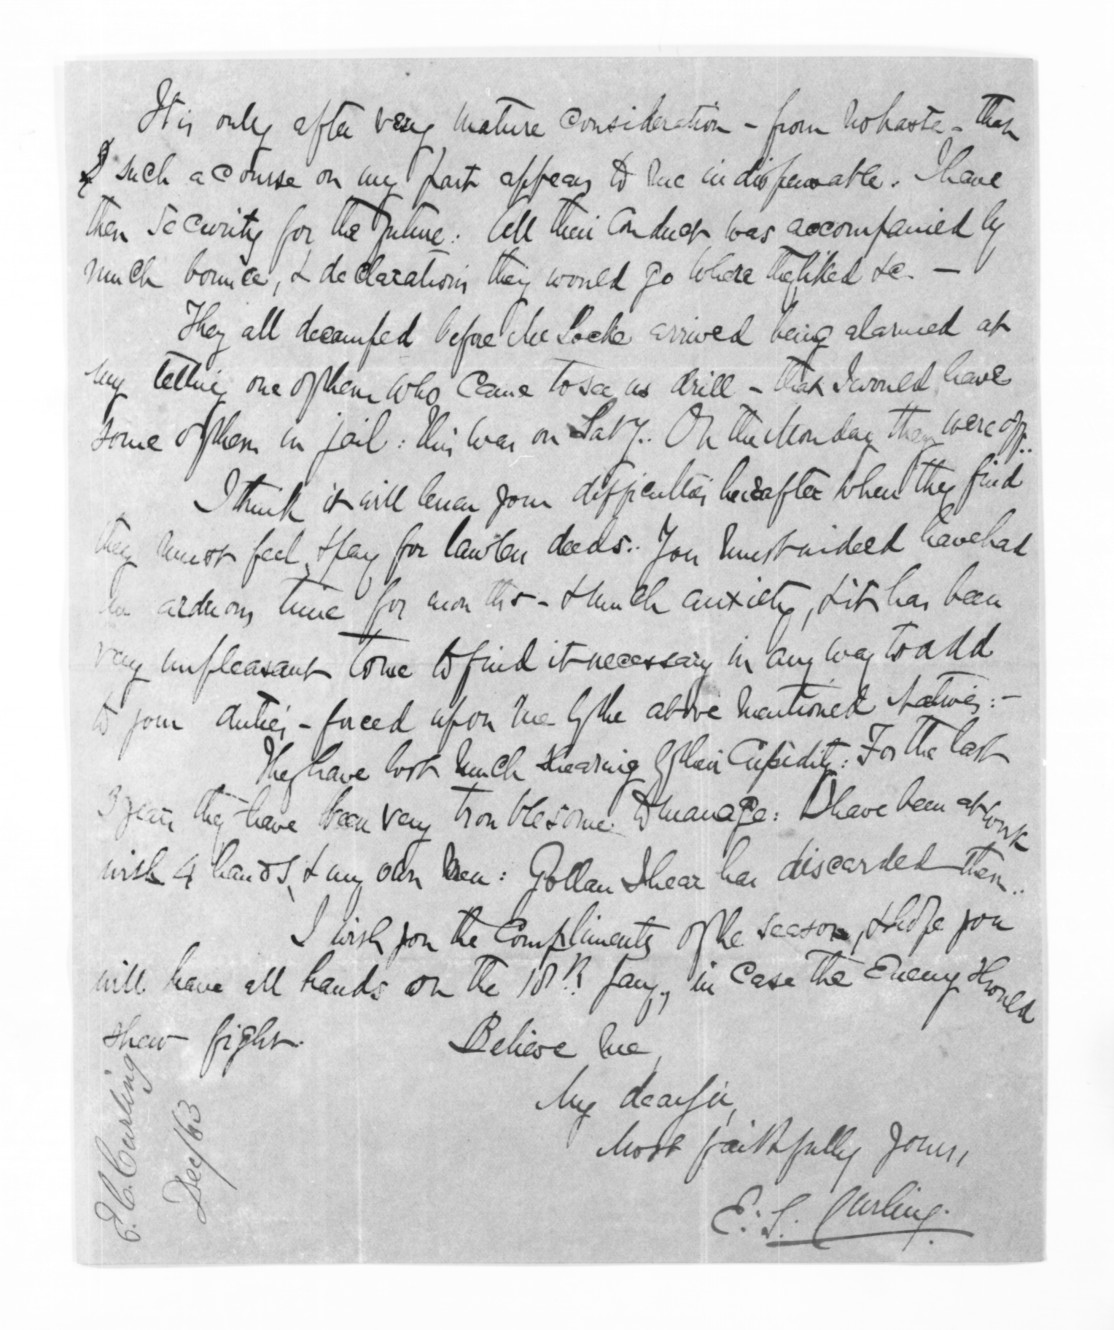 It is only after very mature consideration - from no haste - that
such a course on my part appears to me indispensable. I have
then security for the future: All their conduct was accompanied by
much bounce, & declarations they would go where they liked &c. -
They all decamped before Mr Locke arrived being alarmed at
my telling one of them who came to see us drill - that I would have
some of them in jail: this was on Saty. On the Monday they were off..
I think it will lessen your difficulties hereafter when they find
they must feel, & pay for lawless deeds.. You must indeed have had
an arduous time for months - & much anxiety, & it has been
very unpleasant to me to find it necessary in any way to add
to your duties - forced upon me by the above mentioned Natives: -
They have lost much shearing by their Cupidity: For the last
3 years they have been very troublesome to manage: I have been at work
with 4 hands, & my own men: Gollan I hear has discarded them..
I wish you the Compliments of the season, & hope you
will have all hands on the 18th Jany, in case the Enemy should
shew fight.
Believe me,
My dear Sir,
Most faithfully yours,
E. S. Curling.
Curling
Dec/63